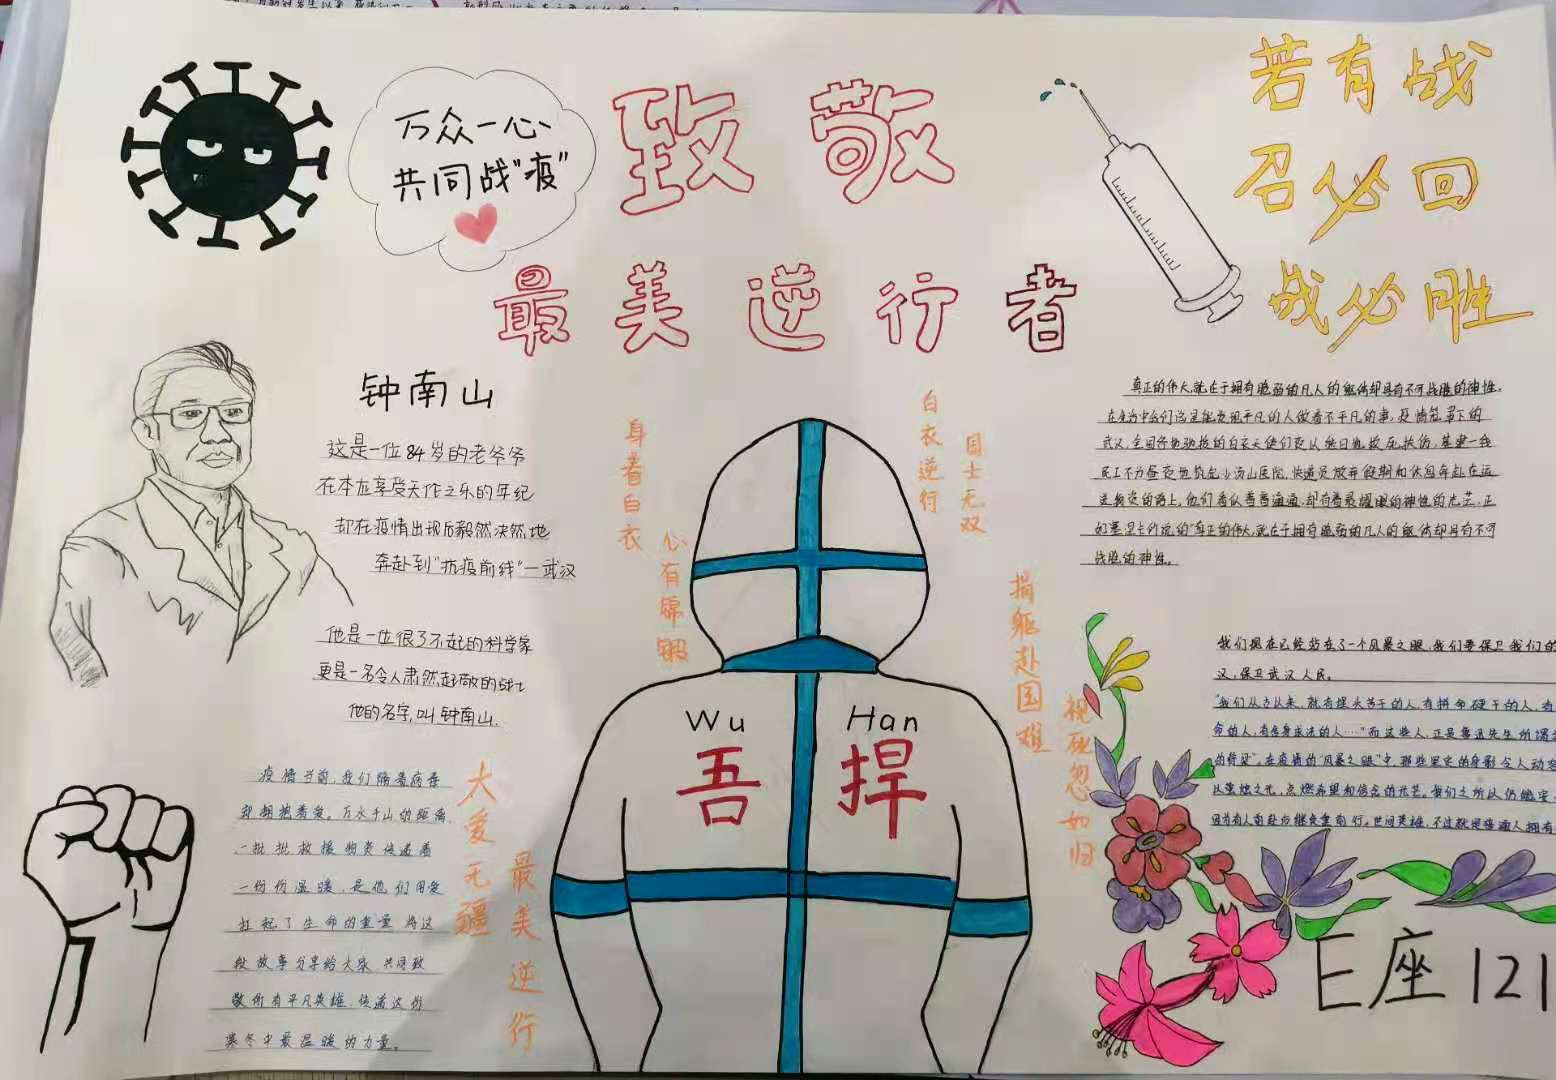 万众一心
共同战"疫"
致敬
最美逆行者
若有战
召必回
战必胜
钟南山
这是一位84岁的老爷爷
在本应享受天作之乐的年纪
却在疫情出现后毅然决然地
奔赴到"抗疫前线"—武汉
他是一位很了不起的科学家
更是一名令人肃然起敬的战士
他的名字,叫钟南山.
疫情当前,我们隔着病毒
却拥抱着爱。万水千山的距离,
一批批救援物资传递着
一份份温暖,是他们用爱
扛起了生命的重量 将这
段故事分享给大家 共同致
敬所有平凡英雄,传递这份
寒冬中最温暖的力量。
大爱无疆
最美逆行
身着白衣
心有锦缎
白衣逆行
国士无双
捐躯赴国难
视死忽如归
Wu Han
吾捍
真正的伟大,就在于拥有脆弱的凡人的躯体却具有不可战胜的神性。
在生活中我们总是能发现平凡的人做着不平凡的事,疫情笼罩下的
武汉,全国各地驰援的白衣天使们夜以继日地救死扶伤,基建一线
民工不分昼夜地筑起火汤山医院,快递员放弃假期和休息奔赴在运
送物资的路上,他们看似普普通通,却有着最耀眼的神性的光芒。正
如塞涅卡所说的"真正的伟大,就在于拥有脆弱的凡人的躯体却具有不可
战胜的神性。
我们现在已经站在了一个风暴之眼,我们要保卫我们的
汉,保卫武汉人民。
"我们从古以来,就有埋头苦干的人,有拼命硬干的人,有
命的人,有舍身求法的人……"而这些人,正是鲁迅先生所谓
的脊梁"。在疫情的"风暴之眼"中,那些坚定的身影令人动容
以萤烛之光,点燃希望和信念的光芒。我们之所以仍能坚
因为有人前赴后继负重前行。世间英雄,不过就是普通人拥有
E座121